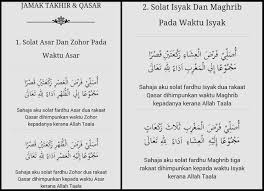 JAMAK TAKHIR & QASAR
1. Solat Asar Dan Zohor Pada
Waktu Asar
أُصَلِّيْ فَرْضَ العَصْرِ رَكْعَتَيْنِ قَصْرًا
مَجْمُوْعًا إِلَيْهِ الظُّهْرُ أَدَاءً لِلَّهِ تَعَالَى
Sahaja aku solat fardhu Asar dua rakaat
Qasar dihimpunkan kepada waktu Zohor
kepadanya kerana Allah Taala
أُصَلِّيْ فَرْضَ الظُّهْرِ رَكْعَتَيْنِ قَصْرًا
مَجْمُوْعًا إِلَى العَصْرِ أَدَاءً لِلَّهِ تَعَالَى
Sahaja aku solat fardhu Zohor dua rakaat
Qasar dihimpunkan kepada waktu Asar
kerana Allah Taala
2. Solat Isyak Dan Maghrib
Pada Waktu Isyak
أُصَلِّيْ فَرْضَ العِشَاءِ رَكْعَتَيْنِ قَصْرًا
مَجْمُوْعًا إِلَيْهِ المَغْرِبُ أَدَاءً لِلَّهِ تَعَالَى
Sahaja aku solat fardhu Isyak dua rakaat
Qasar dihimpunkan waktu Maghrib
kepadanya kerana Allah Taala
أُصَلِّيْ فَرْضَ المَغْرِبِ ثَلَاثَ رَكَعَاتٍ
مَجْمُوْعًا إِلَى العِشَاءِ أَدَاءً لِلَّهِ تَعَالَى
Sahaja aku solat fardhu Maghrib tiga
rakaat dihimpunkan kepada waktu Isyak
kerana Allah Taala